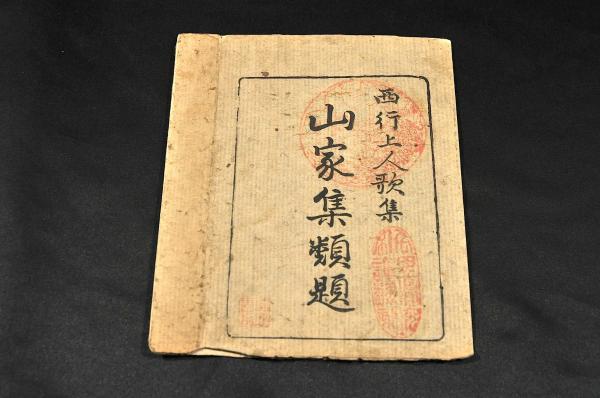 西行上人歌集
山家集類題